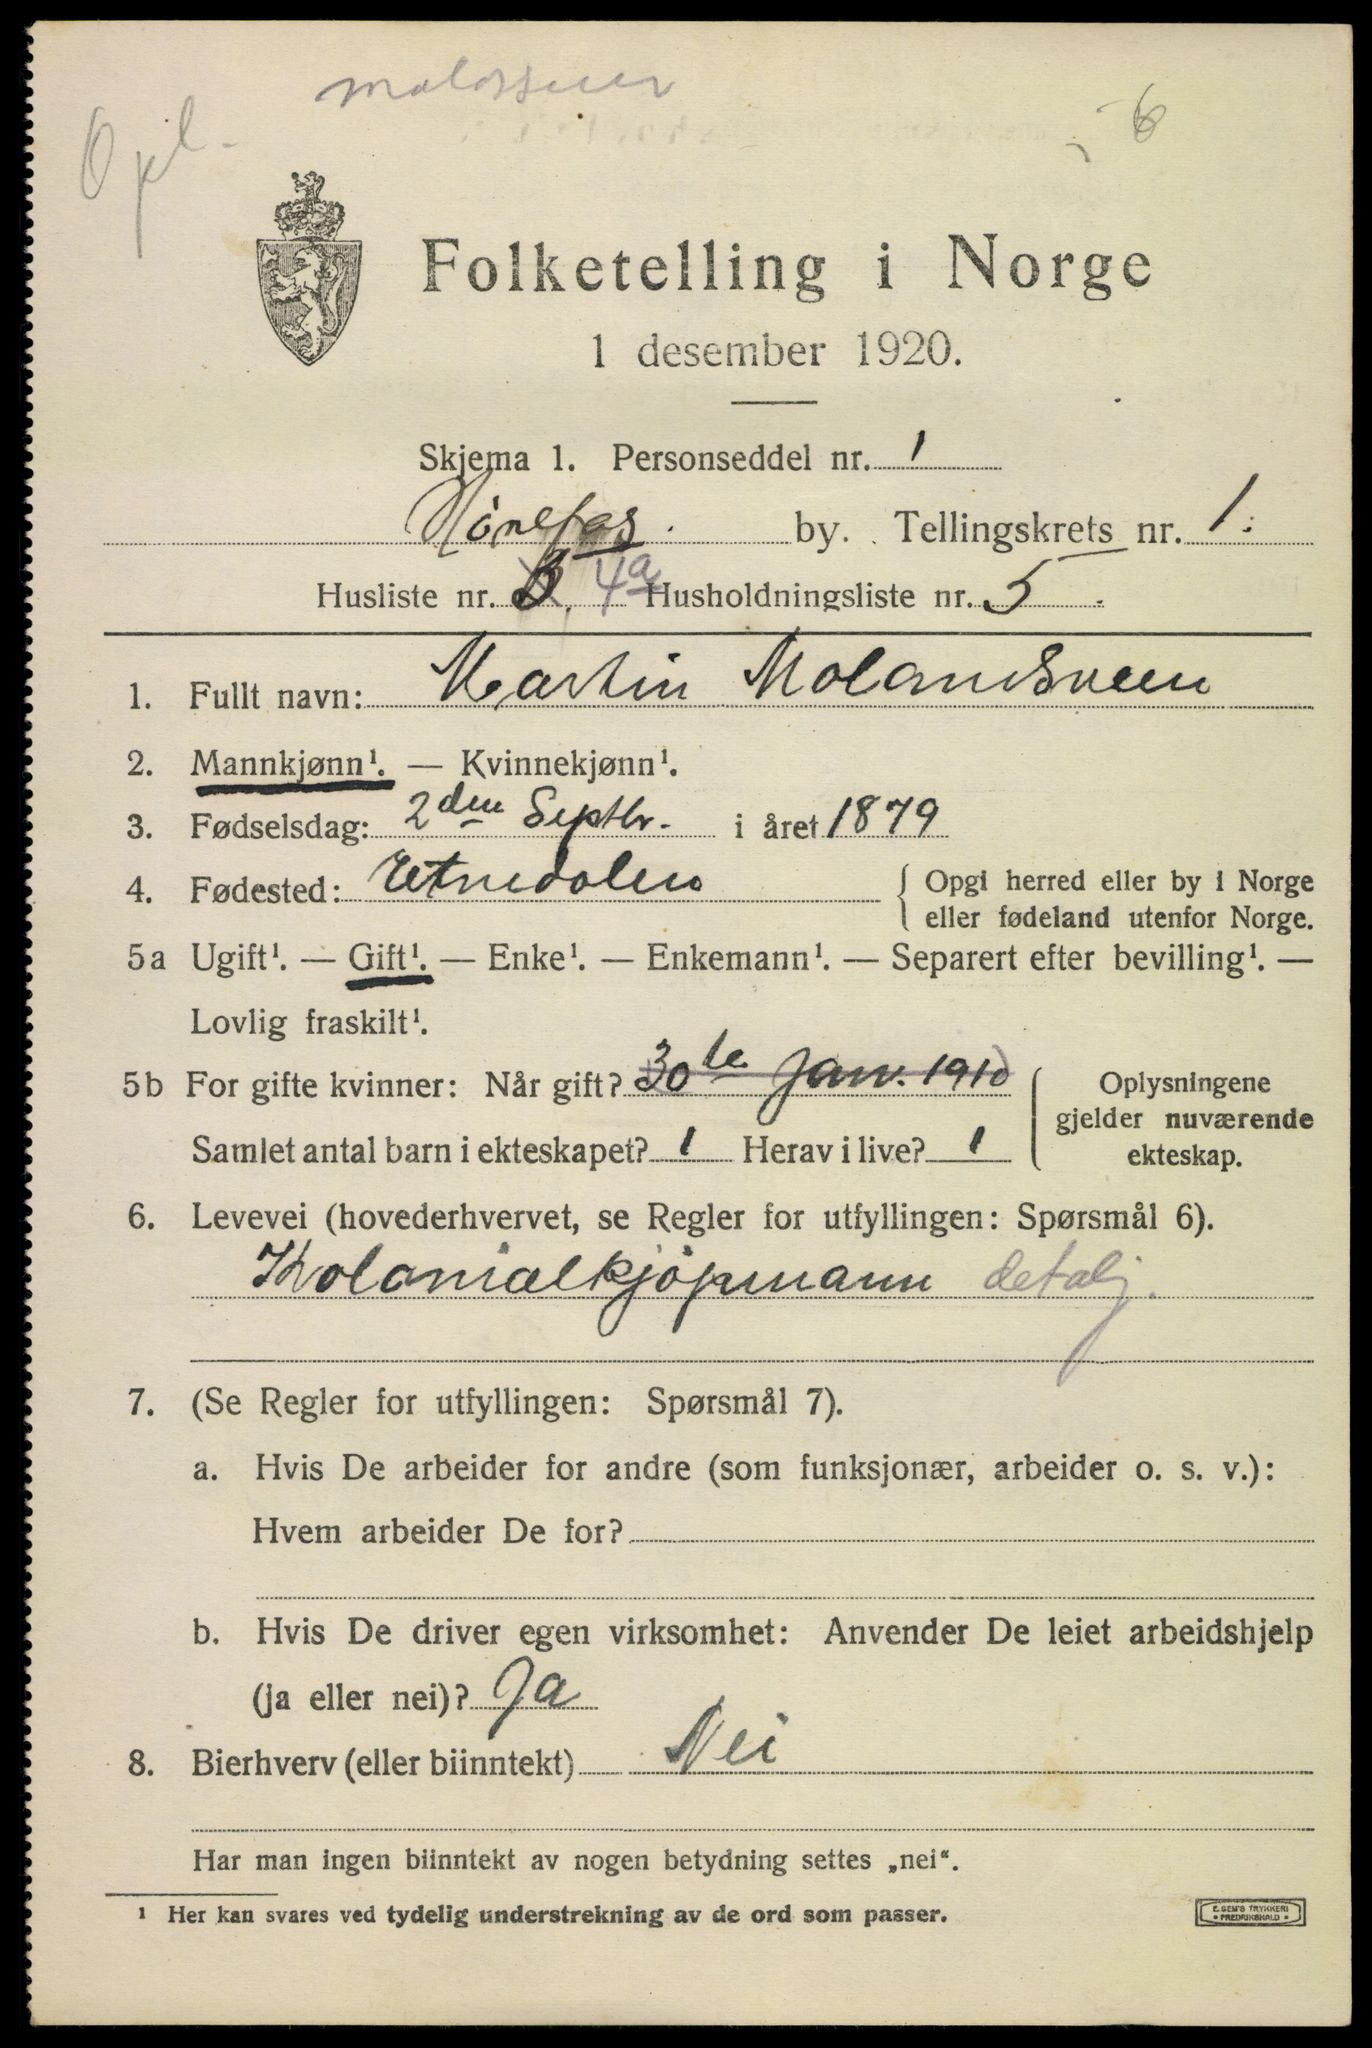 Opl.
6
Folketelling i Norge
1 desember 1920.
Skjema 1. Personseddel nr. 1
Hönefos. by. Tellingskrets nr. 1.
Husliste nr. 3. 4a Husholdningsliste nr. 5
1. Fullt navn: Martin Molandsveen
2. Mannkjønn¹. — Kvinnekjønn¹.
3. Fødselsdag: 2den Septbr. i året 1879
4. Fødested: Etnedalen { Opgi herred eller by i Norge
eller fødeland utenfor Norge.
5a Ugift¹. — Gift¹. — Enke¹. — Enkemann¹. — Separert efter bevilling¹. —
Lovlig fraskilt¹.
5b For gifte kvinner: Når gift? 30te Jan. 1910 { Oplysningene
gjelder nuværende
Samlet antal barn i ekteskapet? 1 Herav i live? 1 ekteskap.
6. Levevei (hovederhvervet, se Regler for utfyllingen: Spørsmål 6).
Kolonialkjöpmann detalj.
7. (Se Regler for utfyllingen: Spørsmål 7).
a. Hvis De arbeider for andre (som funksjonær, arbeider o. s. v.):
Hvem arbeider De for?
b. Hvis De driver egen virksomhet: Anvender De leiet arbeidshjelp
(ja eller nei)? Ja
8. Bierhverv (eller biinntekt) Nei
Har man ingen biinntekt av nogen betydning settes „nei“.
¹ Her kan svares ved tydelig understrekning av de ord som passer.
E. SEM'S TRYKKERI
• FREDRIKSHALD •